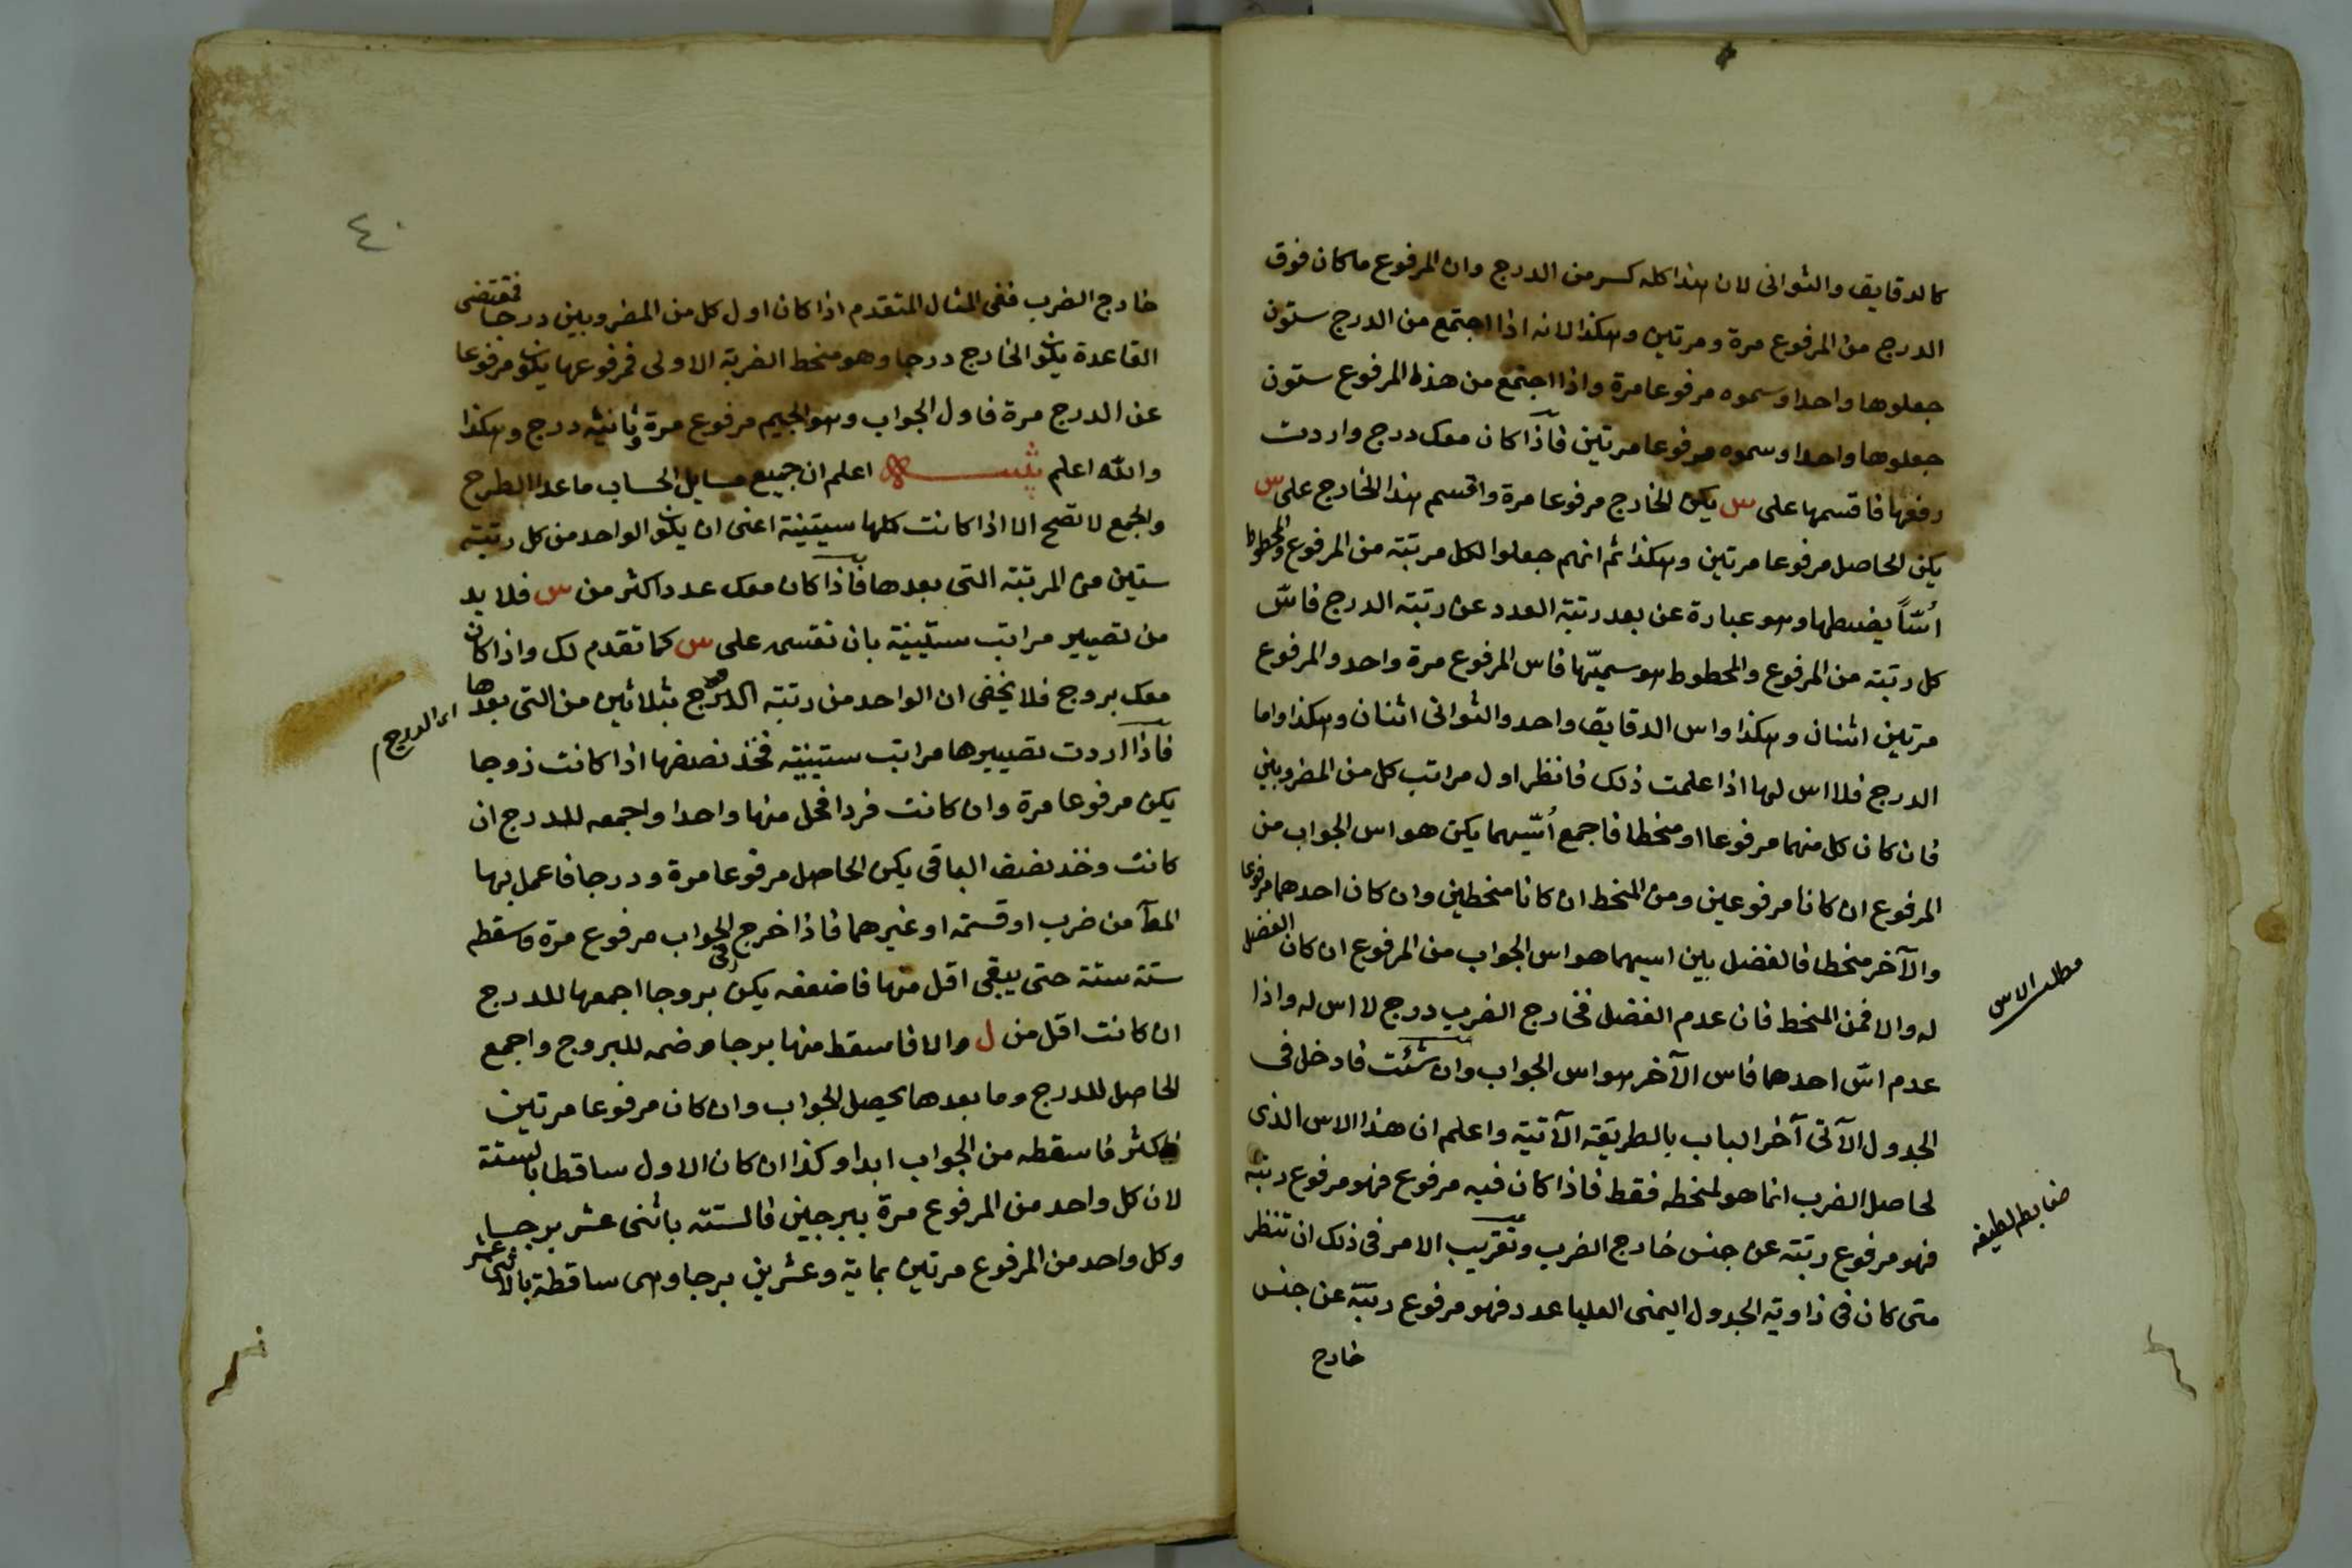 كالدقايق والثوانى لان هذا كله كسر من الدرج وان المرفوع ما كان فوق
الدرج من المرفوع مرة ومرتين وهكذا لانه اذا اجتمع من الدرج ستون
جعلوها واحدا وسموه مرفوعا مرة واذا اجتمع من هذا المرفوع ستون
جعلوها واحدا وسموه مرفوعا مرتين فاذا كان معك درج واردت
رفعها فاقسمها على س يكن الخارج مرفوعا مرة واقسم هذا الخارج على س
يكن الحاصل مرفوعا مرتين وهكذا ثم انهم جعلوا لكل مرتبته من المرفوع والمحطوط
أسّاً يضبطها وهو عبارة عن بعد رتبته العدد عن رتبته الدرج فاسّ
كل رتبته من المرفوع والمحطوط هو سميّها فاس المرفوع مرة واحد والمرفوع
مرتين اثنان وهكذا واس الدقايق واحد والثوانى اثنان وهكذا واما
الدرج فلا اس لها اذا علمت ذلك فانظر اول مراتب كل من المضروبين
فان كان كل منهما مرفوعا او منحطا فاجمع أسّيهما يكن هو اس الجواب من
المرفوع ان كانا مرفوعين ومن المنحط ان كانا منحطين وان كان احدهما مرفوعا
والآخر منحطا فالفضل بين اسيهما هو اس الجواب من المرفوع ان كان الفضل
له والا فمن المنحط فان عدم الفضل فخارج الضرب درج لا اس له واذا
عدم اسّ احدهما فاس الآخر هو اس الجواب وان شئت فادخل فى
الجدول الآتى آخر الباب بالطريقة الآتية واعلم ان هذا الاس الذى
لحاصل الضرب انما هو لمنحطه فقط فاذا كان فيه مرفوع فهو مرفوع رتبته
فهو مرفوع رتبته عن جنس خارج الضرب وتقريب الامر فى ذلك ان تنظر
متى كان فى زاوية الجدول اليمنى العليا عدد فهو مرفوع رتبته عن جنس
خارج
مطلب الاس
ضابط لطيفه
٤٠
خارج الضرب ففى المثال المتقدم اذا كان اول كل من المضروبين درجا فمقتضى
القاعدة يكون الخارج درجا وهو منحط الضربة الاولى فمرفوعها يكون مرفوعا
عن الدرج مرة فاول الجواب وهو الجيم مرفوع مرة وثانيه درج وهكذا
والله اعلم تنبيه اعلم ان جميع مسايل الحساب ما عدا الطرح
والجمع لا تصح الا اذا كانت كلها ستينية اعنى ان يكون الواحد من كل رتبته
ستين من المرتبته التى بعدها فاذا كان معك عدد اكثر من س فلا بد
من تصيير مراتب ستينية بان تقسمه على س كما تقدم لك واذا كان
معك بروج فلا يخفى ان الواحد من رتبته البروج بثلاثين من التى بعدها
اى الدرج
فاذا اردت تصييرها مراتب ستينيه فخذ نصفها اذا كانت زوجا
يكن مرفوعا مرة وان كانت فردا فحل منها واحدا واجمعه للدرج ان
كانت وخذ نصف الباقى يكن الحاصل مرفوعا مرة ودرجا فاعمل بها
المط من ضرب او قسمته او غيرهما فاذا خرج الجواب مرفوع مرة فاسقطه
ستة ستة حتى يبقى اقل منها فاضعفه يكن بروجا اجمعها للدرج
ان كانت اقل من ل والا فاسقط منها برجا وضمه للبروج واجمع
الحاصل للدرج وما بعدها يحصل الجواب وان كان مرفوعا مرتين
فاكثر فاسقطه من الجواب ابدا وكذا ان كان الاول ساقطا بالستة
لان كل واحد من المرفوع مرة ببرجين فالستة باثنى عشر برجا
وكل واحد من المرفوع مرتين بماية وعشرين برجا وهى ساقطة بالاثنى عشر